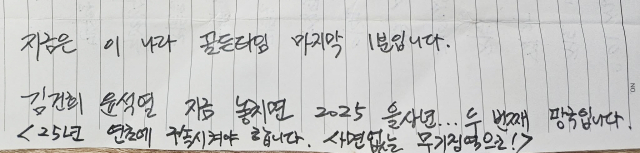 지금은 이 나라 골든타임 마지막 1분입니다.
김건희 윤석열 지금 놓치면 2025 을사년... 두 번째 망국입니다.
<25년 연초에 구속시켜야 합니다. 사면없는 무기징역으로!>